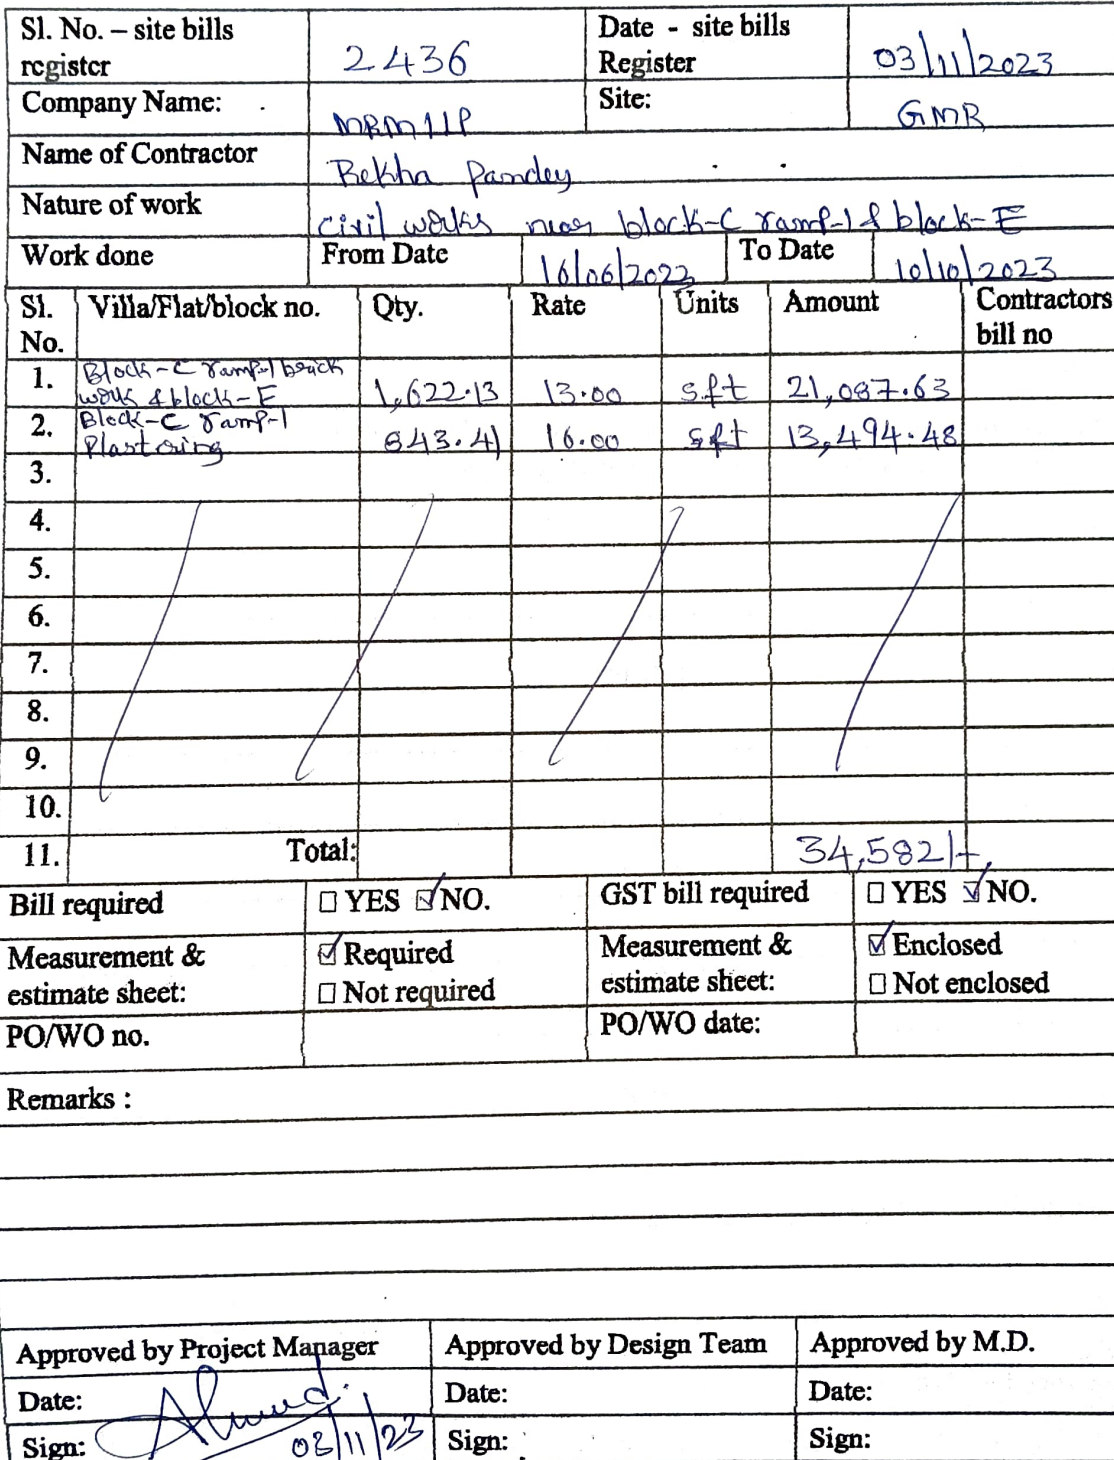 Sl. No. – site bills register 2436 Date - site bills Register 03/11/2023
Company Name: MRMLLP Site: GMR
Name of Contractor Rekha Pandey
Nature of work civil works near block-C ramp-1 & block-E
Work done From Date 16/06/2023 To Date 10/10/2023
Sl. No. Villa/Flat/block no. Qty. Rate Units Amount Contractors bill no
1. Block-C ramp-1 brick work & block-E 1,622.13 13.00 sft 21,087.63
2. Block-C ramp-1 Plastering 843.41 16.00 sft 13,494.48
3.
4.
5.
6.
7.
8.
9.
10.
11. Total: 34,582/-
Bill required ☐ YES ☑ NO. GST bill required ☐ YES ☑ NO.
Measurement & estimate sheet: ☑ Required ☐ Not required Measurement & estimate sheet: ☑ Enclosed ☐ Not enclosed
PO/WO no. PO/WO date:
Remarks :
Approved by Project Manager Approved by Design Team Approved by M.D.
Date: Date: Date:
Sign: 03/11/23 Sign: Sign: